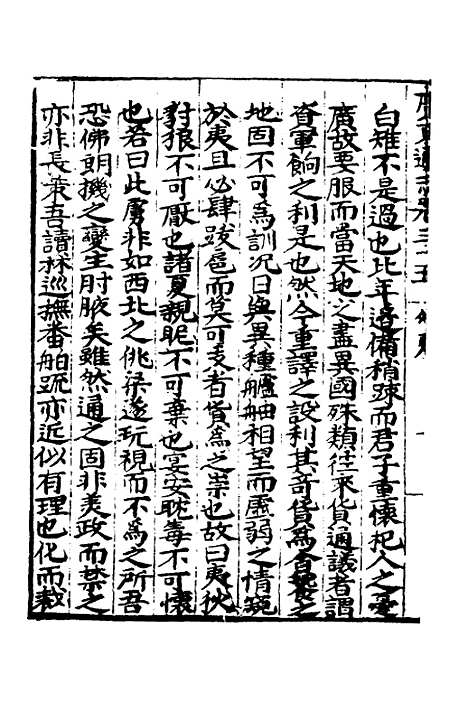 白雉不是過也比年邊備稍踈而君子重懷杞人之憂
廣故要服而當天地之盡異國殊類往來貨通議者謂
資軍餉之利是也然今重譯之設利其奇貨為
地固不可為訓况日與異種艫舳相望而虜弱之情窺
於夷且必肆跋扈而莫可支者貨為之祟也故曰夷狄
豺狼不可厭也諸夏親昵不可棄也宴安酖毒不可懷
也若曰此虜非如西北之佻梁遂玩視而不為之所吾
恐佛朗機之變生肘腋矣雖然通之固非美政而禁之
亦非長䇿吾讀林巡撫番舶疏亦近似有理也化而裁